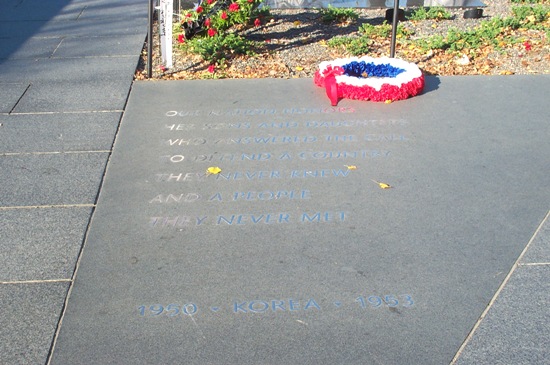 OUR NATION HONORS
HER SONS AND DAUGHTERS
WHO ANSWERED THE CALL
TO DEFEND A COUNTRY
THEY NEVER KNEW
AND A PEOPLE
THEY NEVER MET
1950 • KOREA • 1953